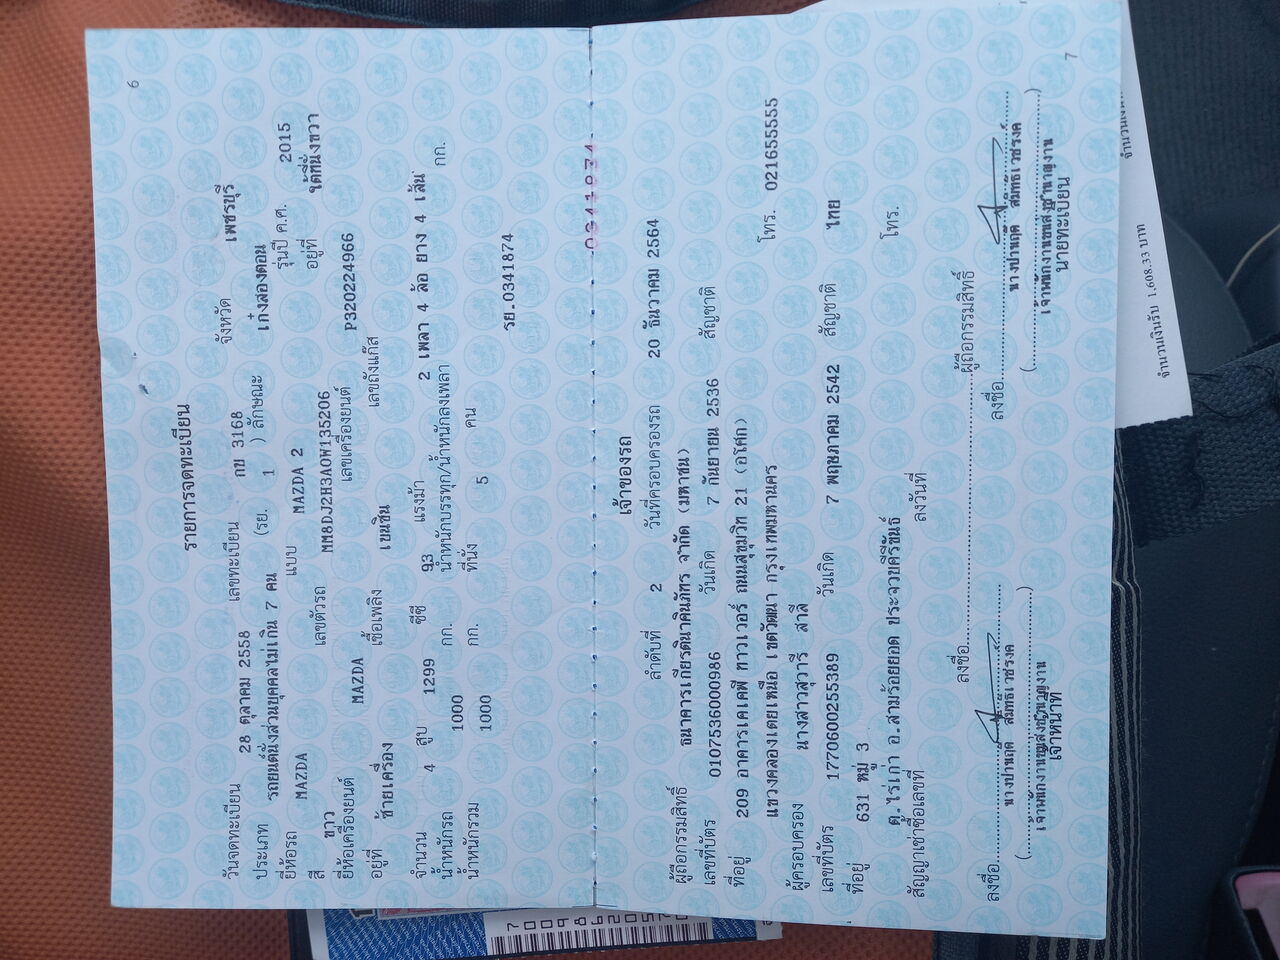 6
รายการจดทะเบียน
วันจดทะเบียน 28 ตุลาคม 2558 เลขทะเบียน กข 3168 จังหวัด เพชรบุรี
ประเภท รถยนต์นั่งส่วนบุคคลไม่เกิน 7 คน (รย. 1 ) ลักษณะ เก๋งสองตอน
ยี่ห้อรถ MAZDA แบบ MAZDA 2 รุ่นปี ค.ศ. 2015
สี ขาว เลขตัวรถ MM8DJ2H3A0W135206 อยู่ที่ ใต้ที่นั่งขวา
ยี่ห้อเครื่องยนต์ MAZDA เลขเครื่องยนต์ P320224966
อยู่ที่ ซ้ายเครื่อง เชื้อเพลิง เบนซิน เลขถังแก๊ส
จำนวน 4 สูบ 1299 ซีซี 93 แรงม้า 2 เพลา 4 ล้อ ยาง 4 เส้น
น้ำหนักรถ 1000 กก. น้ำหนักบรรทุก/น้ำหนักลงเพลา กก.
น้ำหนักรวม 1000 กก. ที่นั่ง 5 คน
รย.0341874
0341874
เจ้าของรถ
ลำดับที่ 2 วันที่ครอบครองรถ 20 ธันวาคม 2564
ผู้ถือกรรมสิทธิ์ ธนาคารเกียรตินาคินภัทร จำกัด (มหาชน)
เลขที่บัตร 0107536000986 วันเกิด 7 กันยายน 2536 สัญชาติ
ที่อยู่ 209 อาคารเคเคพี ทาวเวอร์ ถนนสุขุมวิท 21 (อโศก)
แขวงคลองเตยเหนือ เขตวัฒนา กรุงเทพมหานคร โทร. 021655555
ผู้ครอบครอง นางสาวสุวารี สาลี
เลขที่บัตร 1770600255389 วันเกิด 7 พฤษภาคม 2542 สัญชาติ ไทย
ที่อยู่ 631 หมู่ 3
ต.ไร่เก่า อ.สามร้อยยอด ประจวบคีรีขันธ์ โทร.
สัญญาเช่าซื้อเลขที่ ลงวันที่
ลงชื่อ ผู้ถือกรรมสิทธิ์
ลงชื่อ ลงชื่อ
เจ้าพนักงานขนส่งชำนาญงาน เจ้าพนักงานขนส่งชำนาญงาน
เจ้าหน้าที่ นายทะเบียน
7
จำนวนเงินรับ 1,608.33 บาท